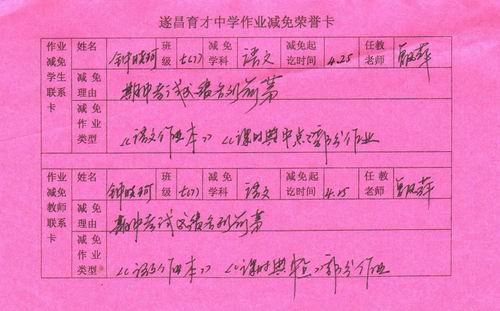 遂昌育才中学作业减免荣誉卡
作业减免学生联系卡
姓名 钟晓珂 班级 七(7) 减免学科 语文 减免起讫时间 4.25 任教老师
减免理由 期中考试成绩名列前茅
减免作业类型 《语文作业本》《课时典中点》部分作业
作业减免教师联系卡
姓名 钟晓珂 班级 七(7) 减免学科 语文 减免起讫时间 4.25 任教老师
减免理由 期中考试成绩名列前茅
减免作业类型 《语文作业本》《课时典中点》部分作业